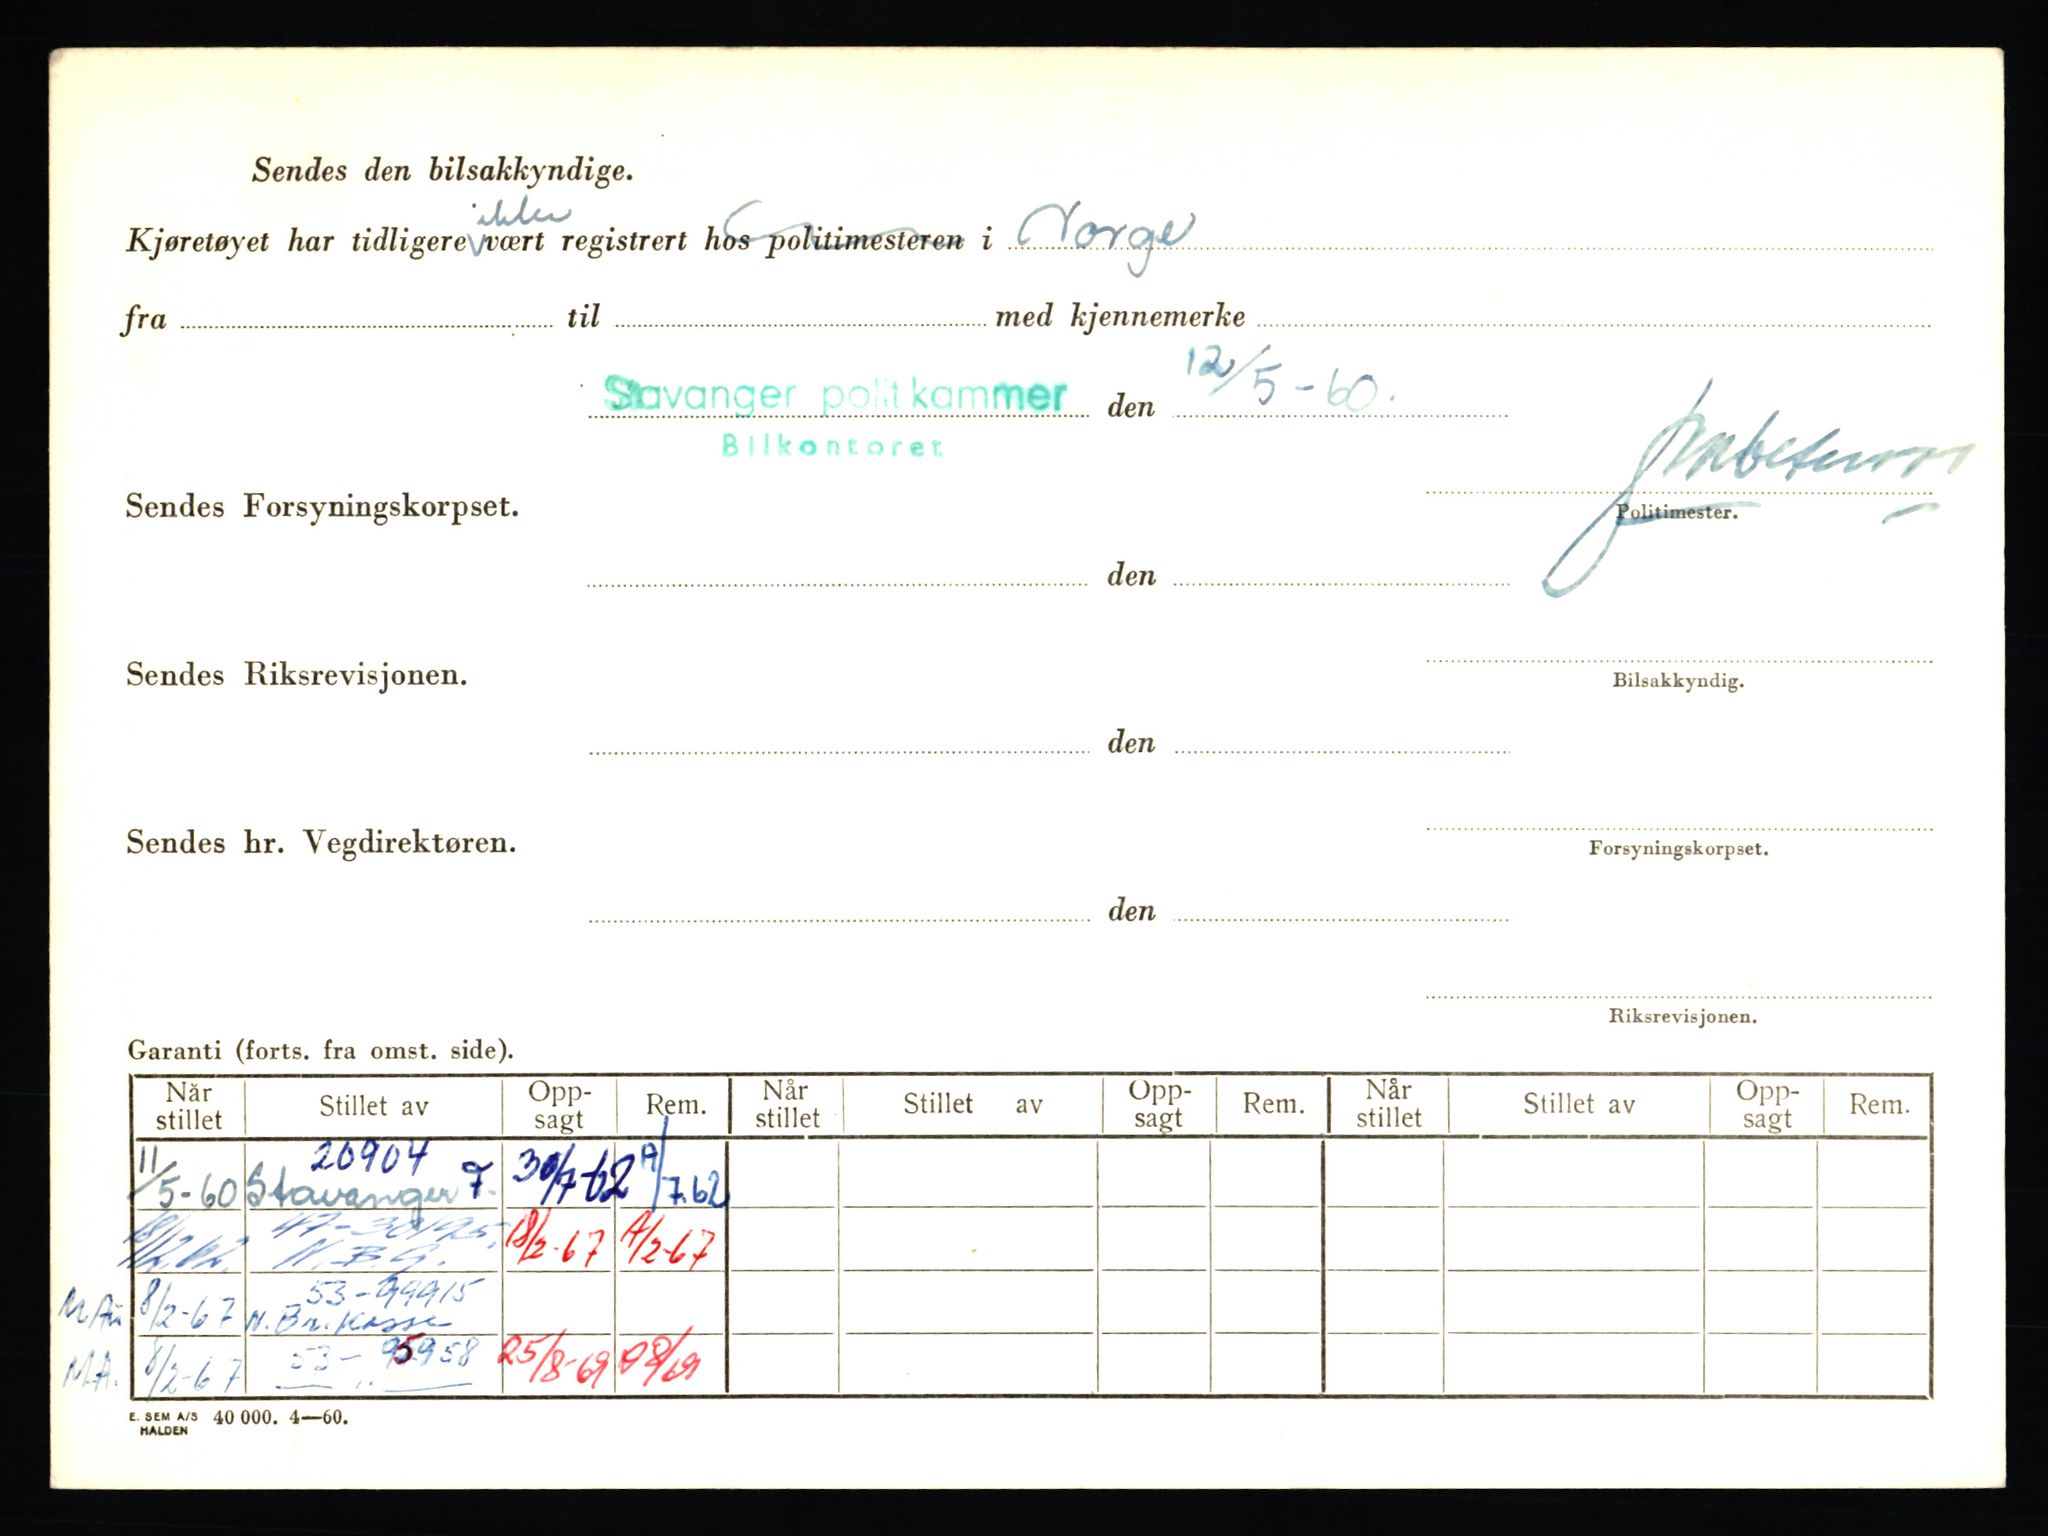 Sendes den bilsakkyndige.
ikke
Kjøretøyet har tidligere vært registrert hos politimesteren i Norge
fra til med kjennemerke
Stavanger politkammer den 12/5-60.
Bilkontoret
Sendes Forsyningskorpset.
Politimester.
den
Sendes Riksrevisjonen.
Bilsakkyndig.
den
Sendes hr. Vegdirektøren.
Forsyningskorpset.
den
Riksrevisjonen.
Garanti (forts. fra omst. side).
Når stillet Stillet av Opp-sagt Rem. Når stillet Stillet av Opp-sagt Rem. Når stillet Stillet av Opp-sagt Rem.
11/5-60 20904 Stavanger F. 30/7-62 A/7.62
N.B.G. 18/2-67 A/2-67
8/2-67 53-99915 N. Br. Kasse
M.A. 8/2-67 53-95958 25/8-69
E. SEM A/S HALDEN 40 000. 4—60.